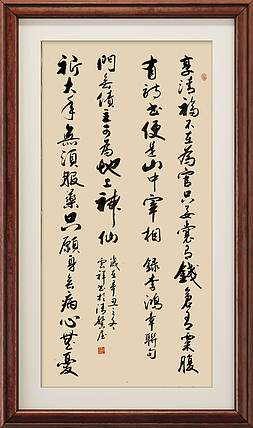 享清福不在為官只要囊有錢倉有粟腹
有詩書便是山中宰相
錄李鴻章聯句
祈大年無須服藥只願身無病心無憂
門無債主可為地上神仙
歲在辛丑之冬
雲祥書於清